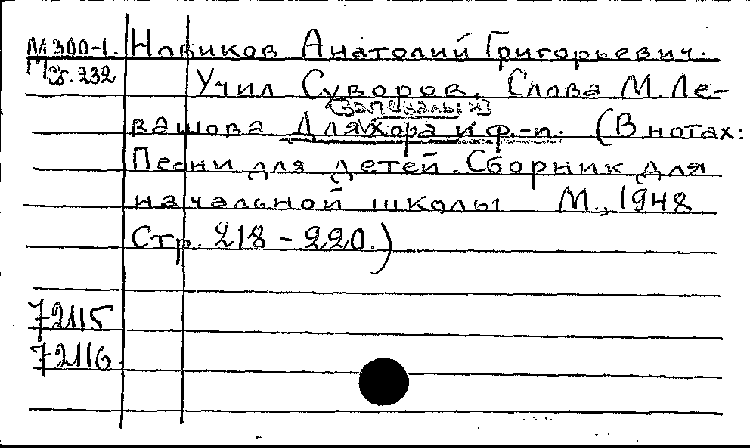 М 300-1. Новиков Анатолий Григорьевич.
Сб. 232 Учил Суворов. Слова М. Ле-
(запевалы х)
вашова Для хора и ф.-п. (В нотах:
Песни для детей. Сборник для
начальной школы М., 1948
Стр. 218 - 220.)
72115
72116